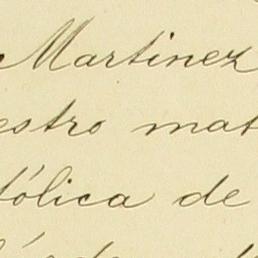 Martinez
estro mat
tólica de